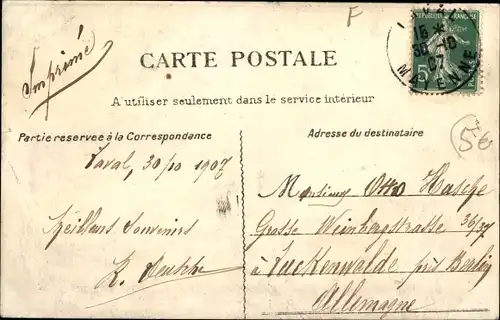 F
Imprimé
CARTE POSTALE
A utiliser seulement dans le service intérieur
Partie reservee à la Correspondance
Adresse du destinataire
REPUBLIQUE FRANÇAISE
15 *
30 -10
07
MAYENNE
5
Laval, 30/10 1907
Meilleurs Souvenirs
K.
Monsieur Otto Hasche
Grosse Weinbergstrasse 36/37
à Luckenwalde près Berlin
Allemagne